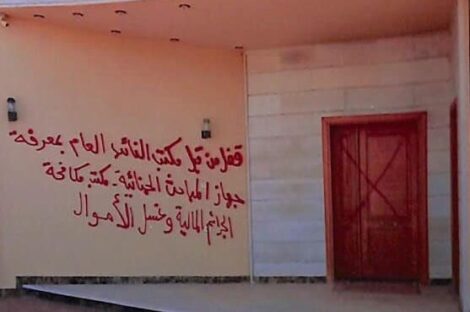 قفل من قبل مكتب النائب العام بمعرفة
جهاز المباحث الجنائية - مكتب مكافحة
الجرائم المالية وغسل الأموال